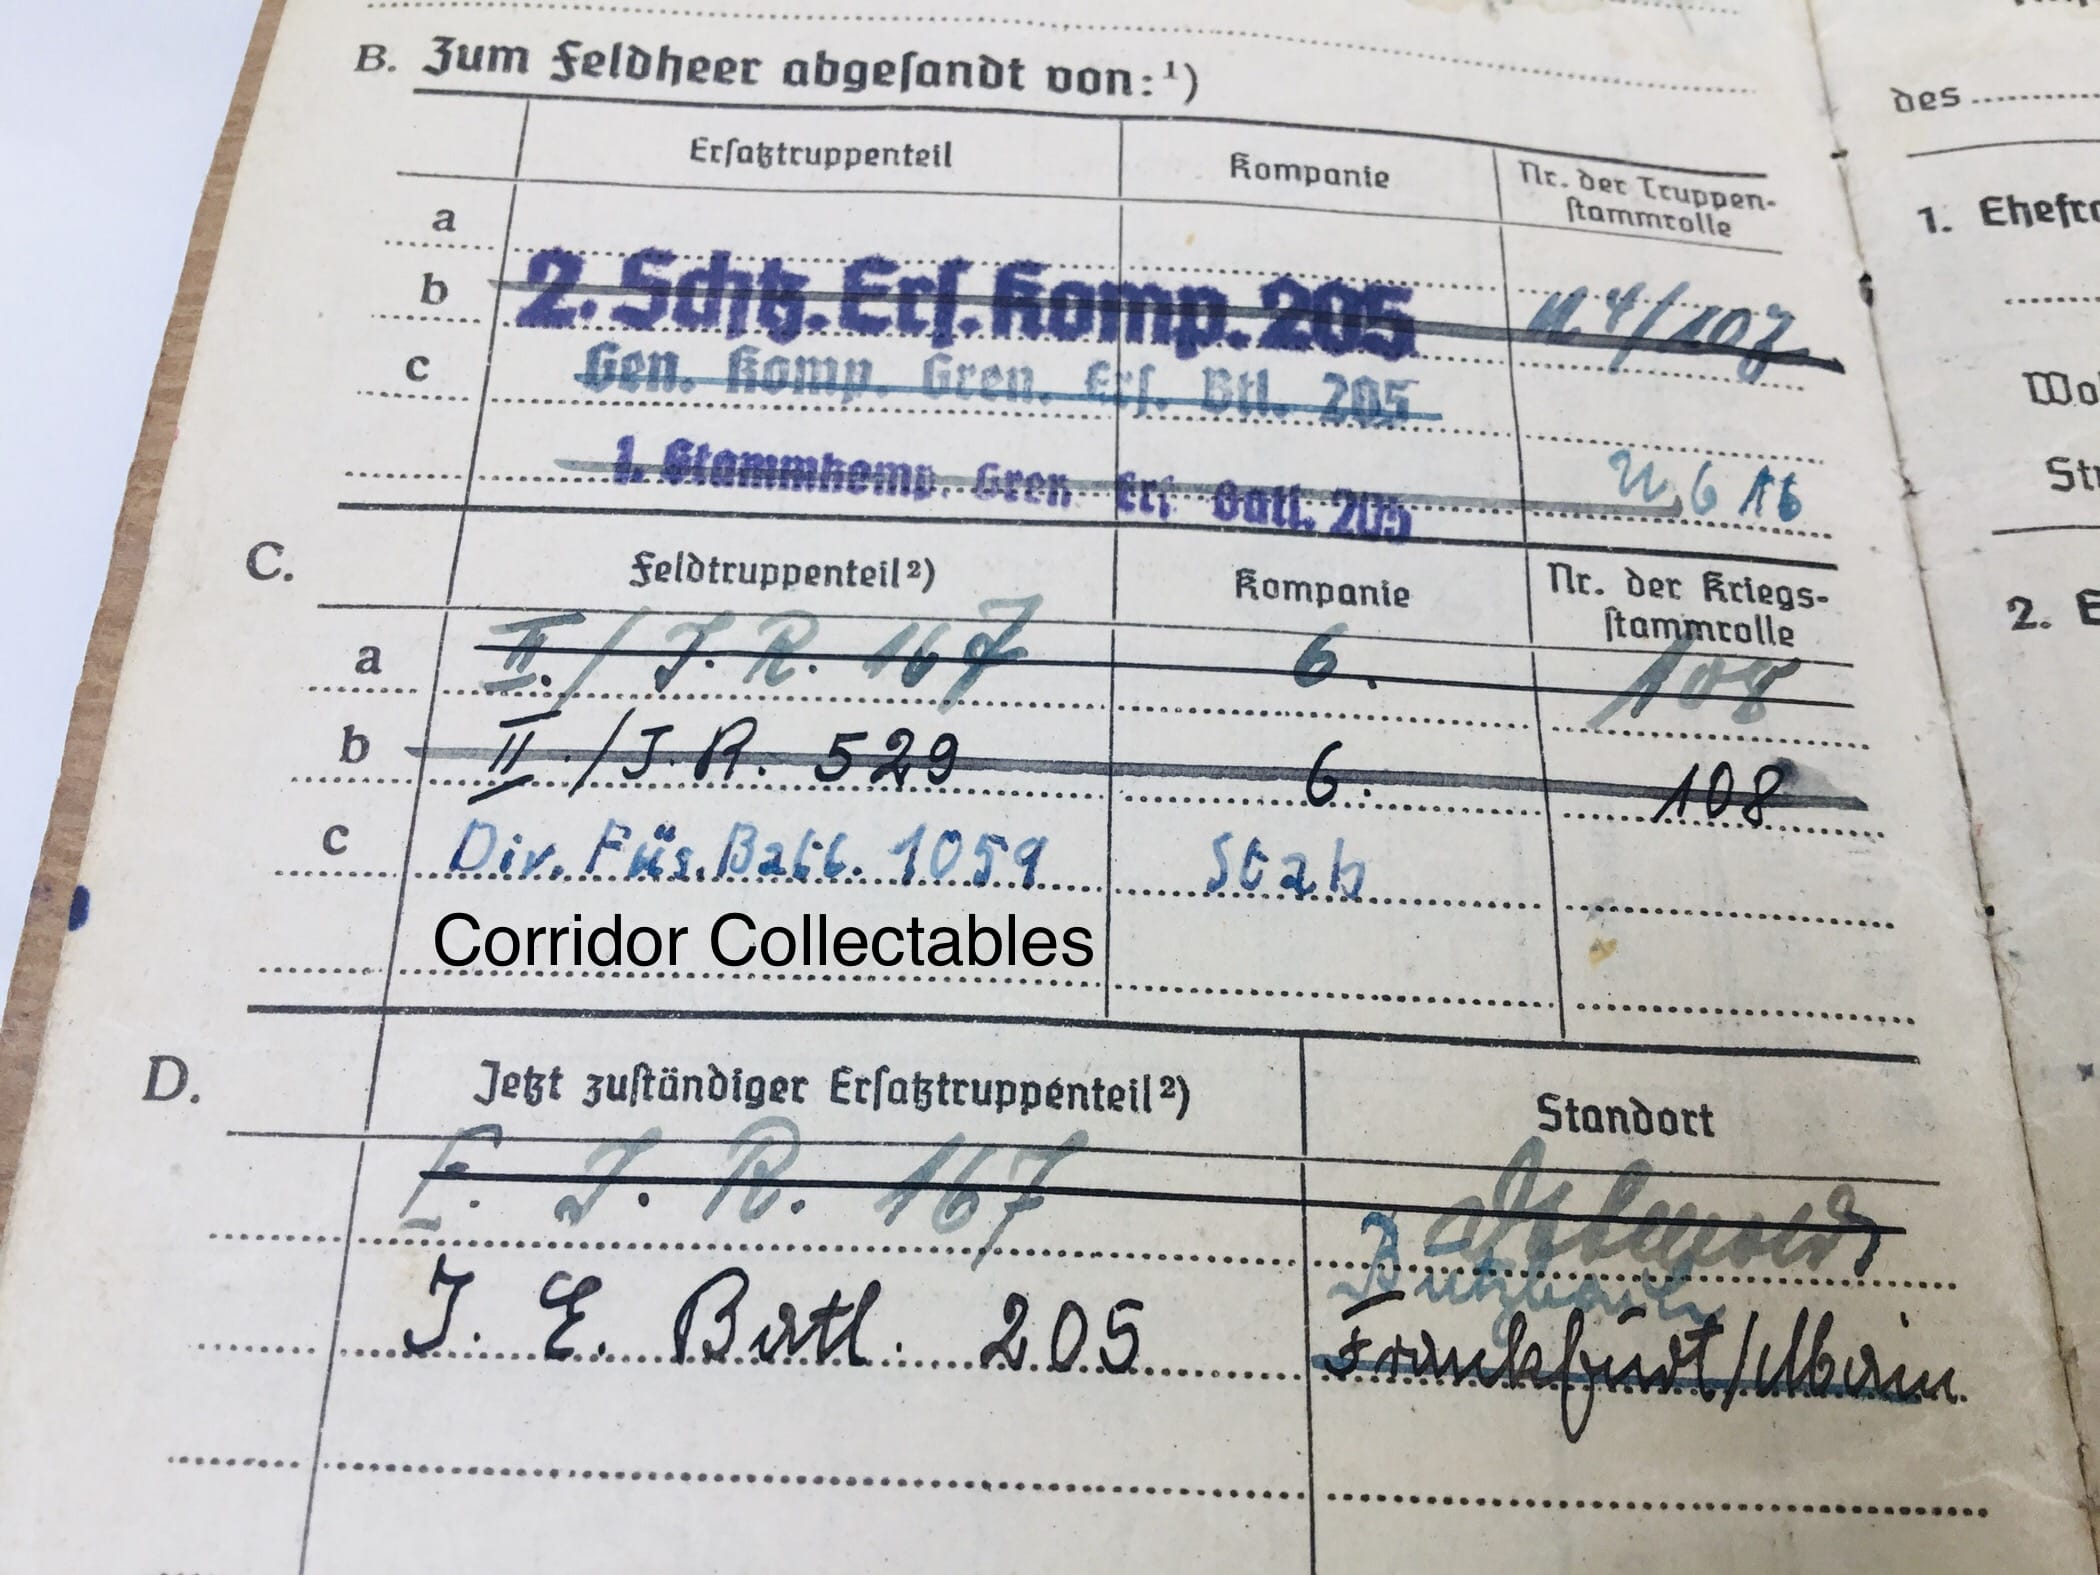 B. Zum Feldheer abgesandt von:¹)
Ersatztruppenteil Kompanie Nr. der Truppen-
stammrolle
a
b 2. Schtz. Ers. Komp. 205 N. 4/107
c Gen. Komp. Gren. Ers. Btl. 205
1. Stammkomp. Gren Ers Batl. 205 6 16
C. Feldtruppenteil²) Kompanie Nr. der Kriegs-
stammrolle
a II./J.R. 167 6. 108
b II./J.R. 529 6. 108
c Div. Füs. Batl. 1059 Stab
Corridor Collectables
D. Jetzt zuständiger Ersatztruppenteil²) Standort
E. J. R. 167 Detmold
Butzbach
J. E. Batl. 205 Frankfurt/Main.
des
1. Ehefra
Wo
St
2. E